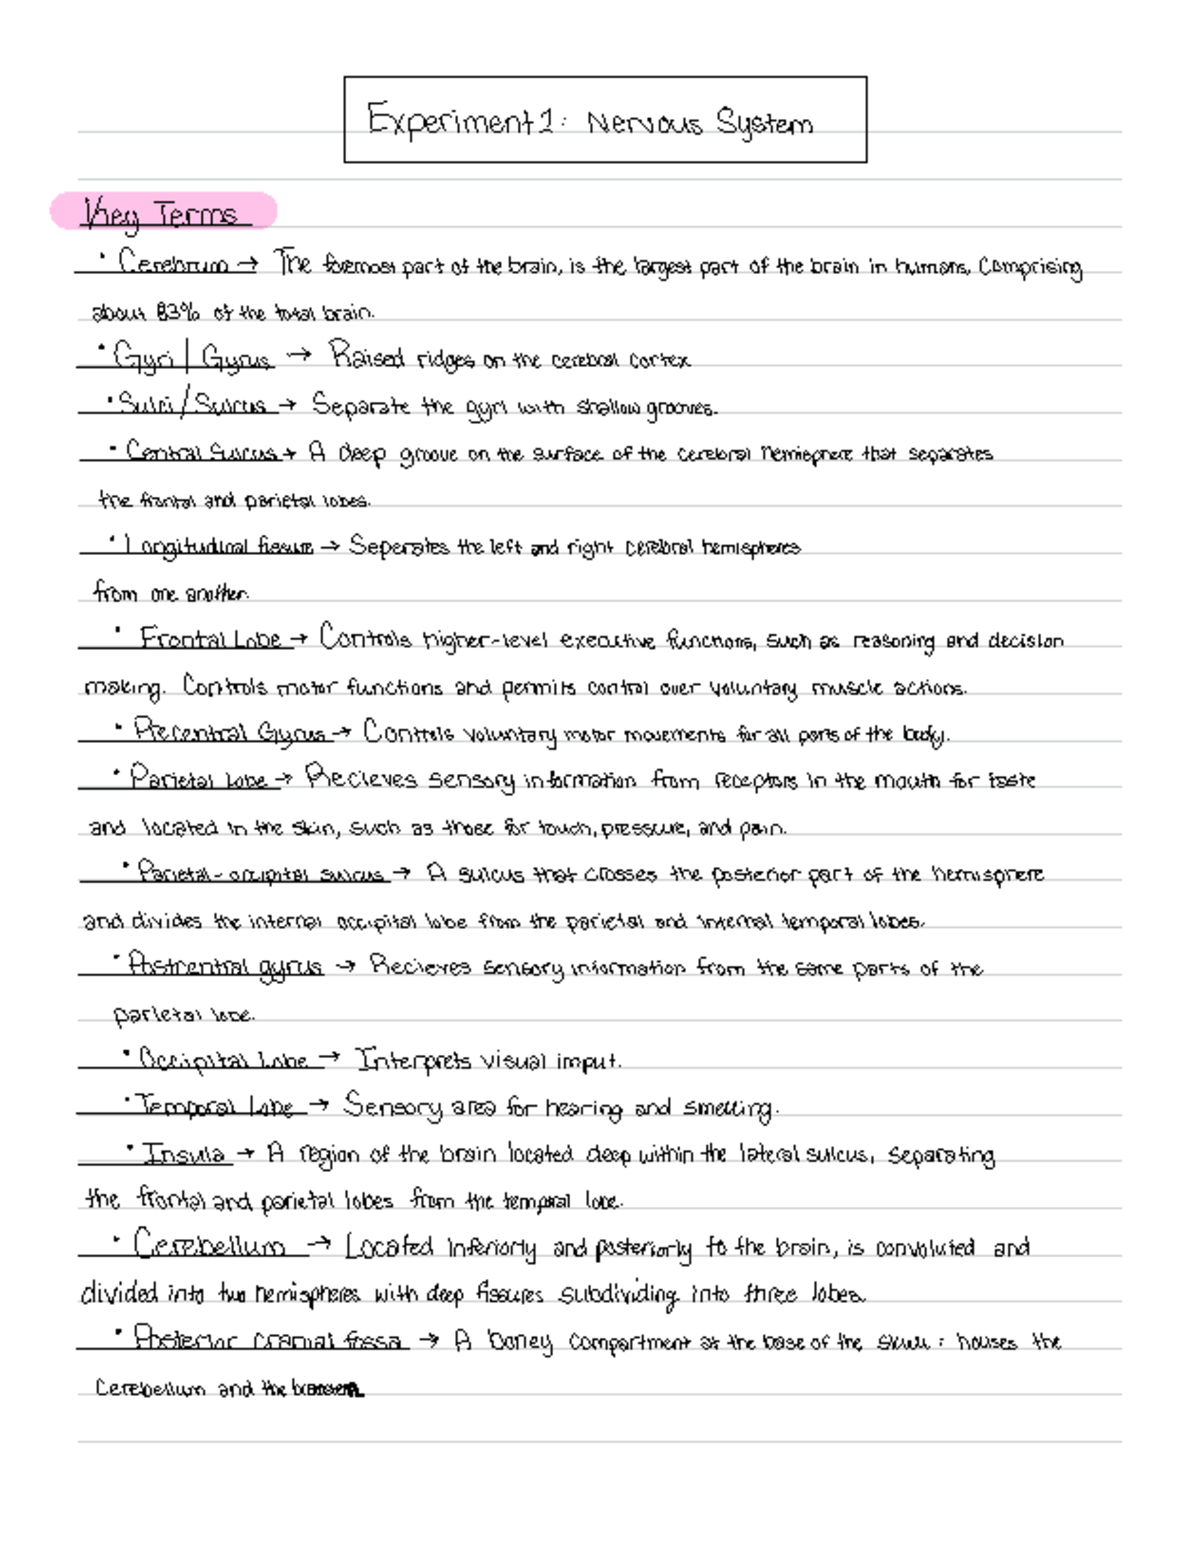 Experiment 1: Nervous System
Key Terms
• Cerebrum → The foremost part of the brain, is the largest part of the brain in humans, Comprising
about 83% of the total brain.
• Gyri | Gyrus → Raised ridges on the cerebral cortex
• Sulci / Sulcus → Separate the gyri with shallow grooves.
• Central Sulcus → A deep groove on the surface of the cerebral hemisphere that separates
the frontal and parietal lobes.
• Longitudinal fissure → Seperates the left and right cerebral hemispheres
from one another.
• Frontal Lobe → Controls higher-level executive functions, such as reasoning and decision
making. Controls motor functions and permits control over voluntary muscle actions.
• Precentral Gyrus → Controls voluntary motor movements for all parts of the body.
• Parietal lobe → Recieves sensory information from receptors in the mouth for taste
and located in the skin, such as those for touch, pressure, and pain.
• Parietal-occipital sulcus → A sulcus that crosses the posterior part of the hemisphere
and divides the internal occipital lobe from the parietal and internal temporal lobes.
• Postcentral gyrus → Recieves sensory information from the same parts of the
parietal lobe.
• Occipital Lobe → Interprets visual imput.
• Temporal Lobe → Sensory area for hearing and smelling.
• Insula → A region of the brain located deep within the lateral sulcus, separating
the frontal and parietal lobes from the temporal lobe.
• Cerebellum → Located inferiorly and posteriorly to the brain, is convoluted and
divided into two hemispheres with deep fissures subdividing into three lobes.
• Posterior cranial fossa → A boney compartment at the base of the skull : houses the
Cerebellum and the